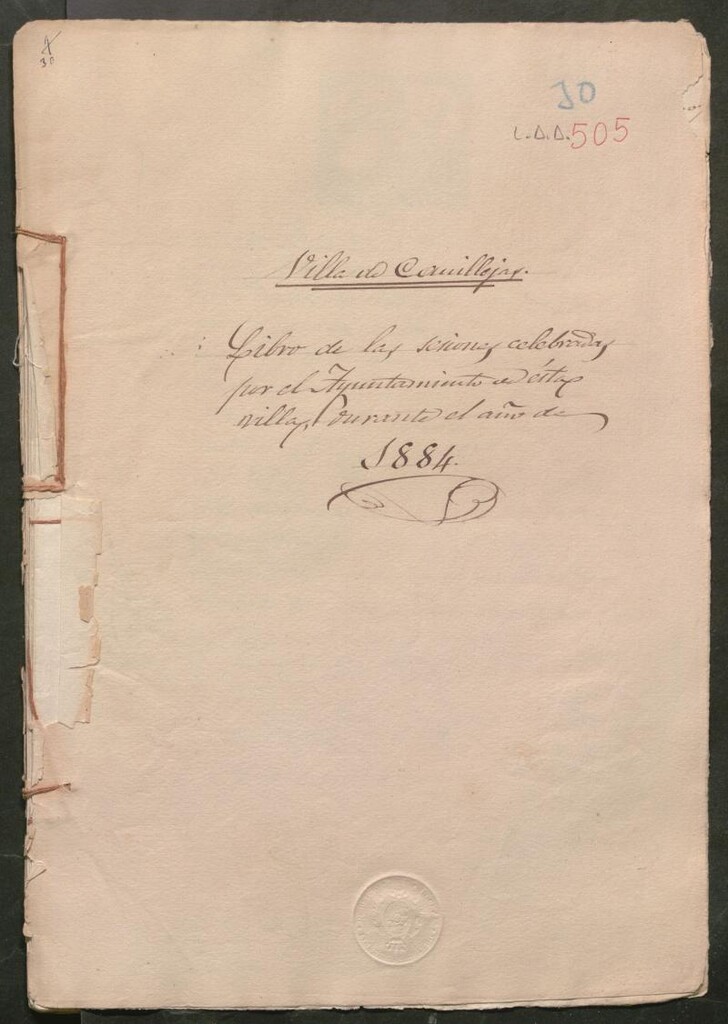 30
30
L.D.D. 505
Villa de Canillejas.
Libro de las sesiones celebradas
por el Ayuntamiento de ésta
villa, durante el año de
1884.